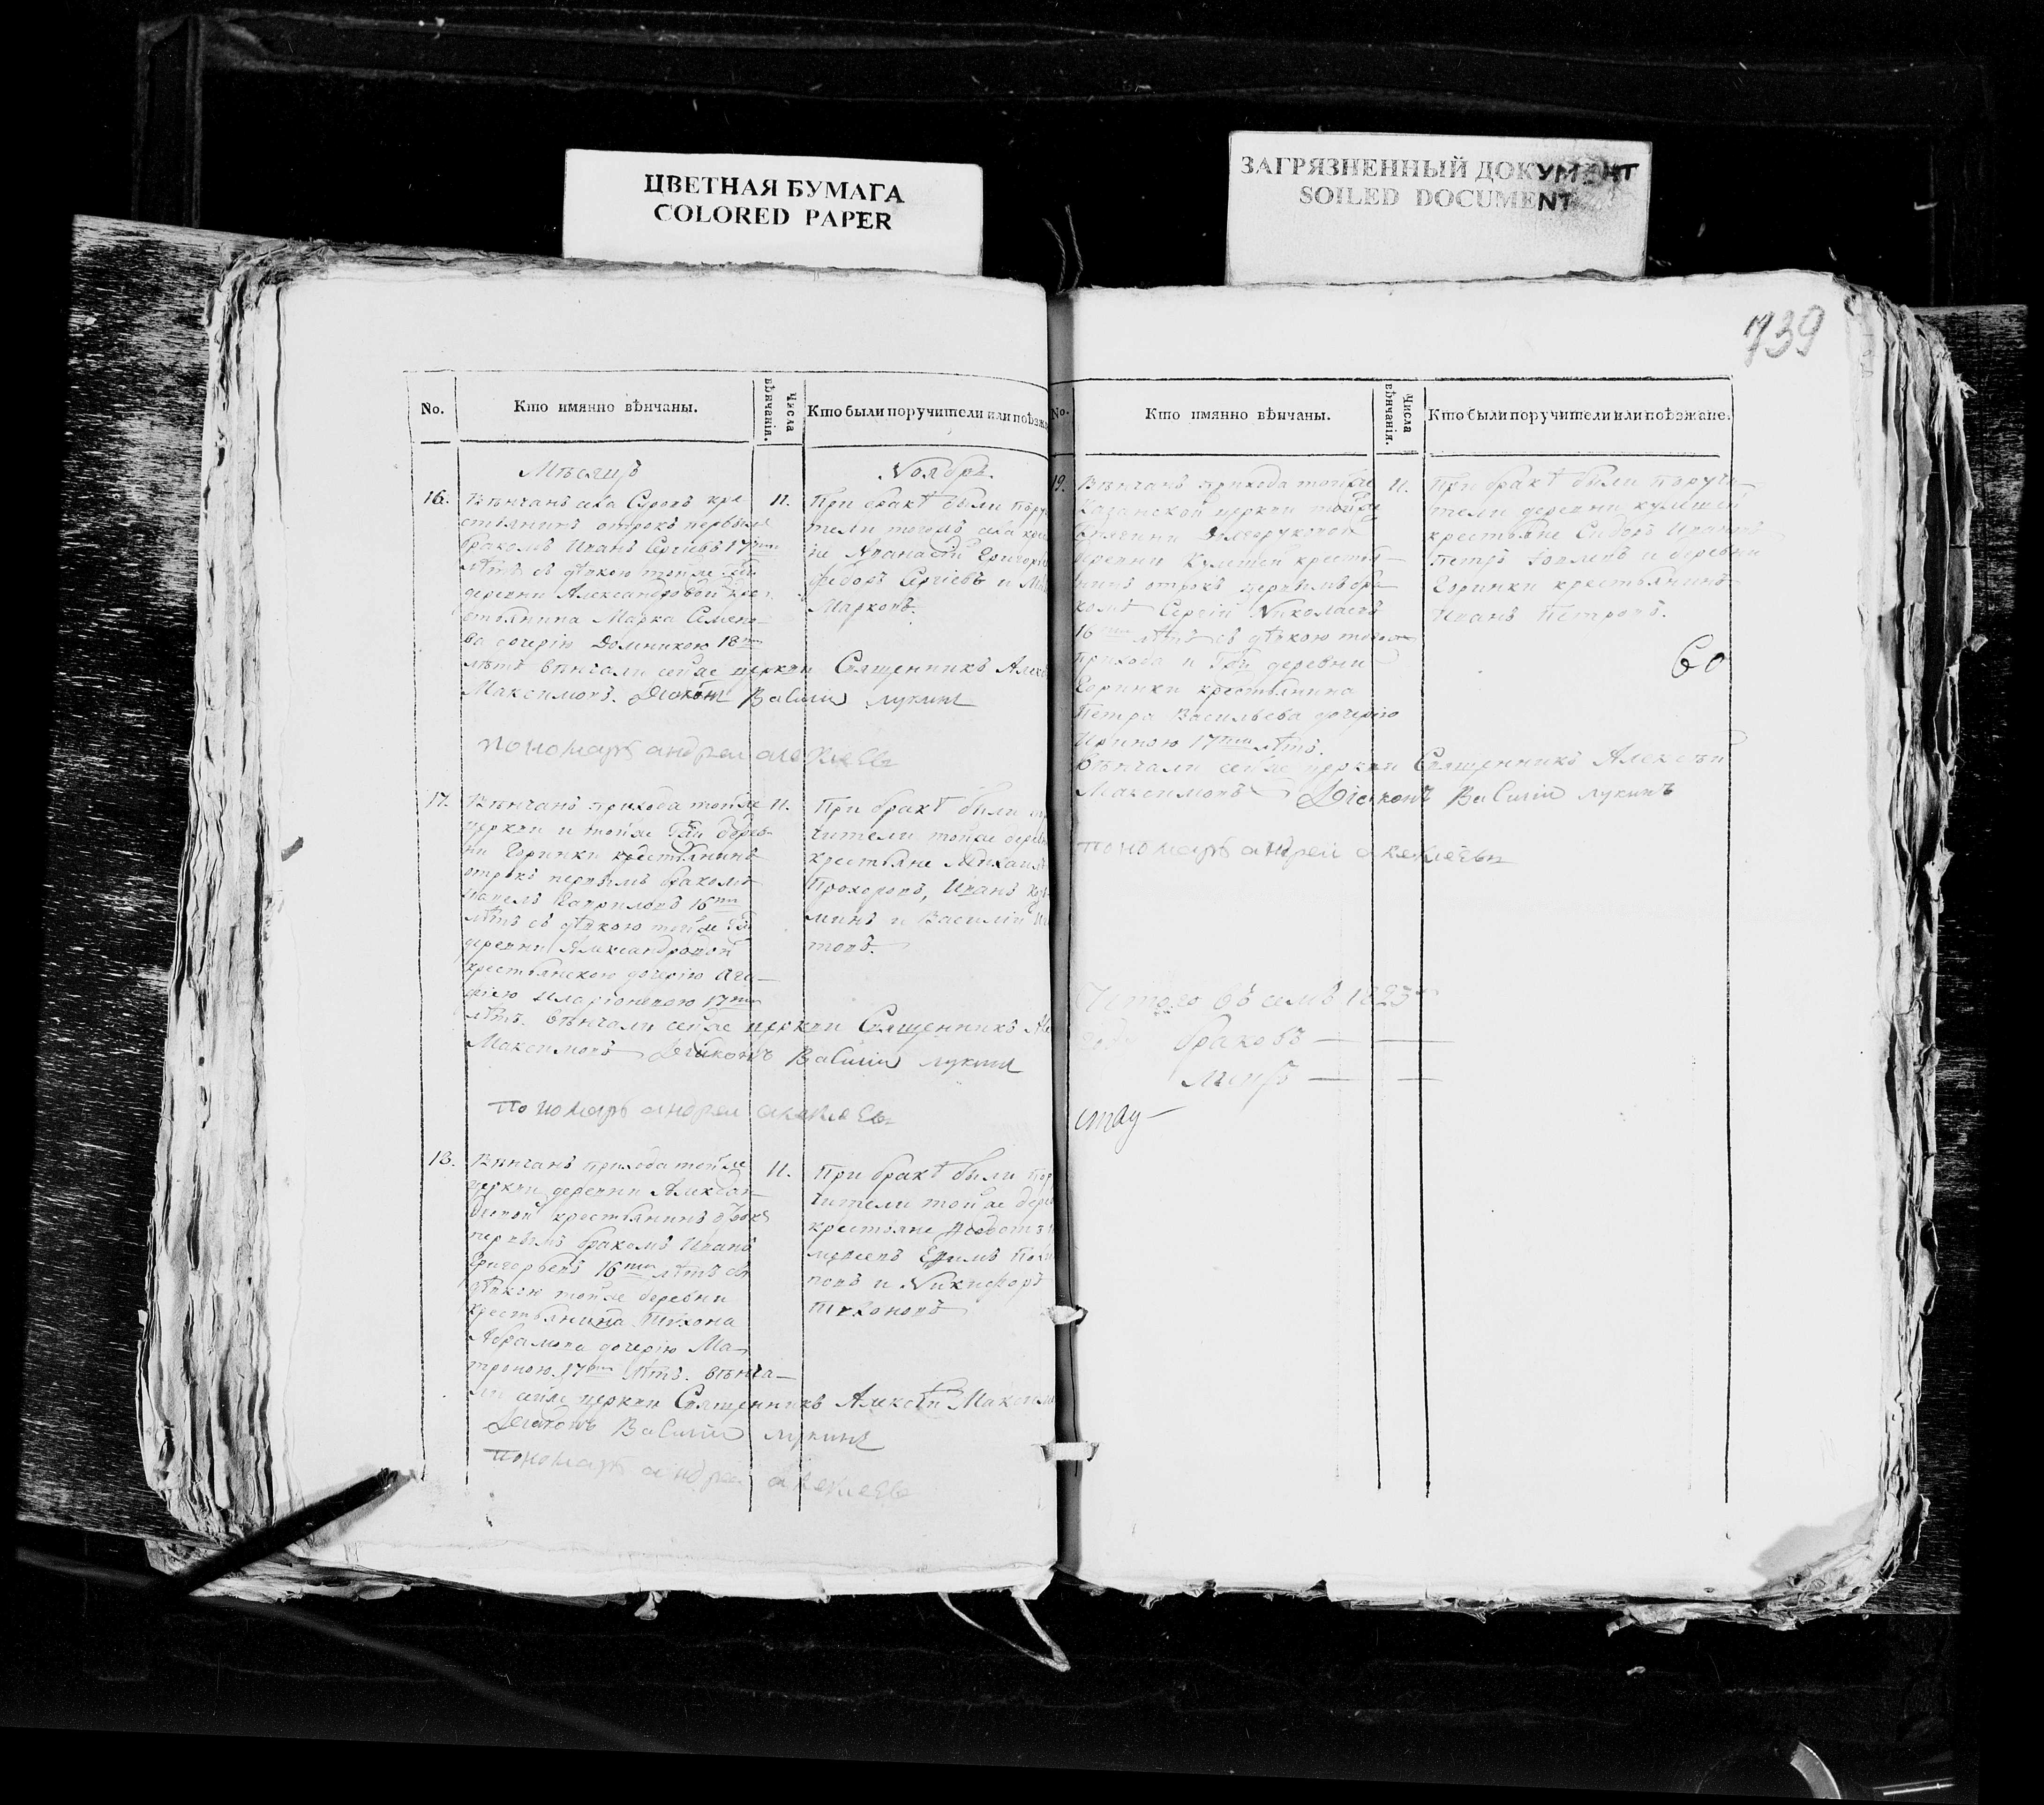 ЦВЕТНАЯ БУМАГА
COLORED PAPER
ЗАГРЯЗНЕННЫЙ ДОКУМЕНТ
SOILED DOCUMENT
739
No.
Кто имянно вѣнчаны.
Числа вѣнчанія.
Кто были поручители или поѣзжа
Мѣсяцъ
Ноябрь.
16.
Вѣнчанъ села Сурокъ кре
стьянинъ отрокъ первымъ
бракомъ Иванъ Сергіевъ 17ти
лѣтъ съ дѣвкою тойже
деревни Александровой кре
стьянина Марка Семено
ва дочерію Домникою 18ти
лѣтъ вѣнчали сейже церкви Священникъ Алекс
Максимовъ. Діаконъ Василий лукинъ
пономарь андрей алексеевъ
11.
При бракѣ были пору
тели тогожъ села крес
не Аѳанасій Григорь
Федоръ Сергіевъ и Ма
Марковъ.
17.
Вѣнчанъ прихода тойже
церкви и тойже Гжи дерев
ни Горинки крестьянинъ
отрокъ первымъ бракомъ
павелъ Гавриловъ 16ти
лѣтъ съ дѣвкою тойже Гжи
деревни Александровой
крестьянскою дочерію Ага
фіею Иларіоновою 17ти
лѣтъ. вѣнчали сейже церкви Священникъ Ал
Максимовъ Діаконъ Василий лукинъ
пономарь андрей алексеевъ
11.
При бракѣ были по
чители тойже дерев
крестьяне Михаилъ
Прохоровъ, Иванъ Коз
минъ и Василій
товъ.
18.
Вѣнчанъ прихода тойже
церкви деревни Александ
ровой крестьянинъ отрокъ
первымъ бракомъ Иванъ
Григорьевъ 16ти лѣтъ съ
дѣвкою тойже деревни
крестьянина Тихона
Абрамова дочерію Ма
троною 17ти лѣтъ. вѣнча
ли сейже церкви Священникъ Алексѣй Максимо
Діаконъ Василий лукинъ
пономарь андрей алексеевъ
11.
При бракѣ были пор
чители тойже дерев
крестьяне Ѳедотъ
Ефимъ
повъ и Никифоръ
Тихоновъ
No.
Кто имянно вѣнчаны.
Числа вѣнчанія.
Кто были поручители или поѣзжане.
19.
Вѣнчанъ прихода тойже
Казанской церкви тойже
Княгини Долгоруковой
деревни Кулишей крестья
нинъ отрокъ первымъ бра
комъ Сергій Николаевъ
16ти лѣтъ съ дѣвкою тогоже
прихода и Гжи деревни
Горинки крестьянина
Петра Васильева дочерію
Ириною 17ти лѣтъ.
Вѣнчали сейже церкви Священникъ Алексѣй
Максимовъ Діаконъ Василий лукинъ
пономарь андрей алексеевъ
11.
При бракѣ были поручи
тели деревни кулишей
крестьяне Сидоръ Ивановъ
Петръ и деревни
Горинки крестьянинъ
Иванъ Петровъ.
60
Итого въ семъ 1823м
году браковъ